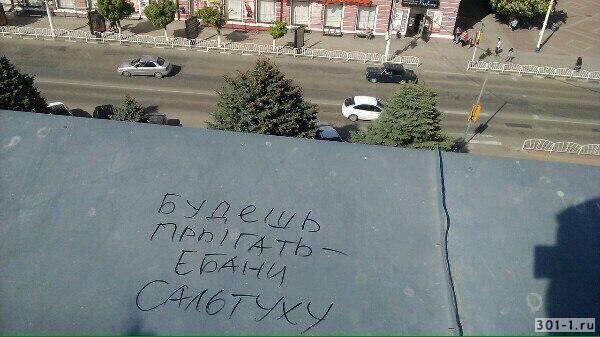 БУДЕШЬ
ПРЫГАТЬ-
ЕБАНИ
САЛЬТУХУ
301-1.ru